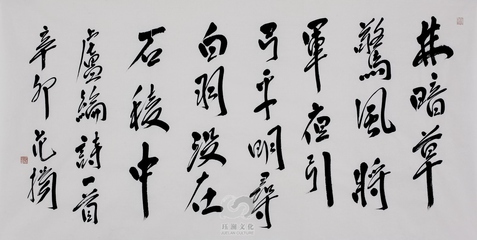 林暗草
驚風將
軍夜引
弓平明尋
白羽没在
石稜中
盧綸詩一首
辛卯范
文化